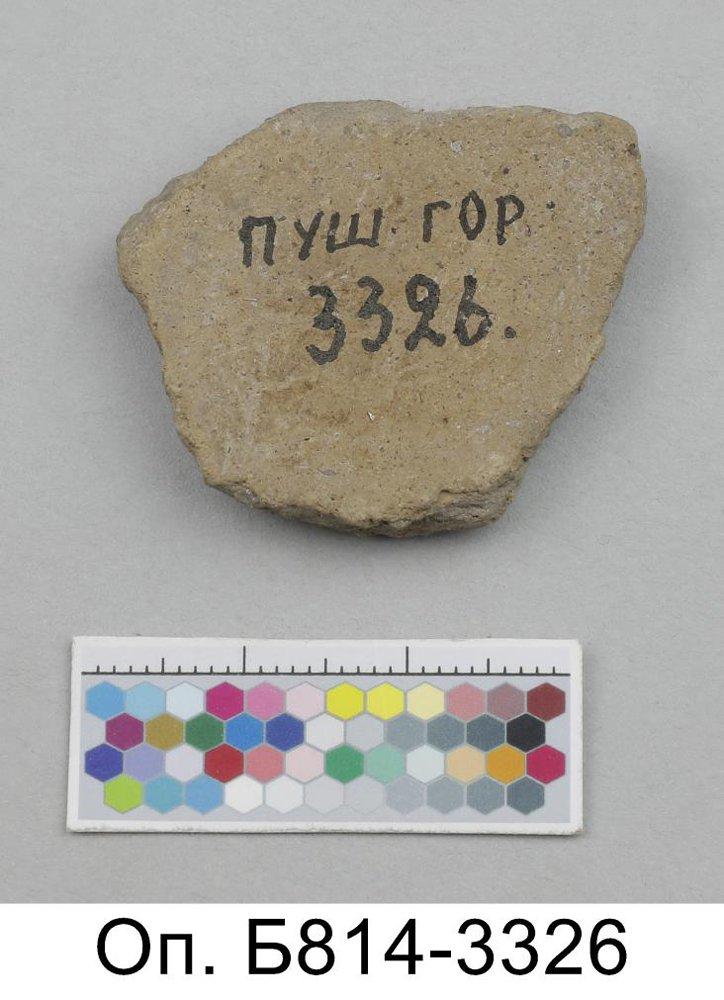 ПУШ. ГОР.
3326.
Оп. Б814-3326